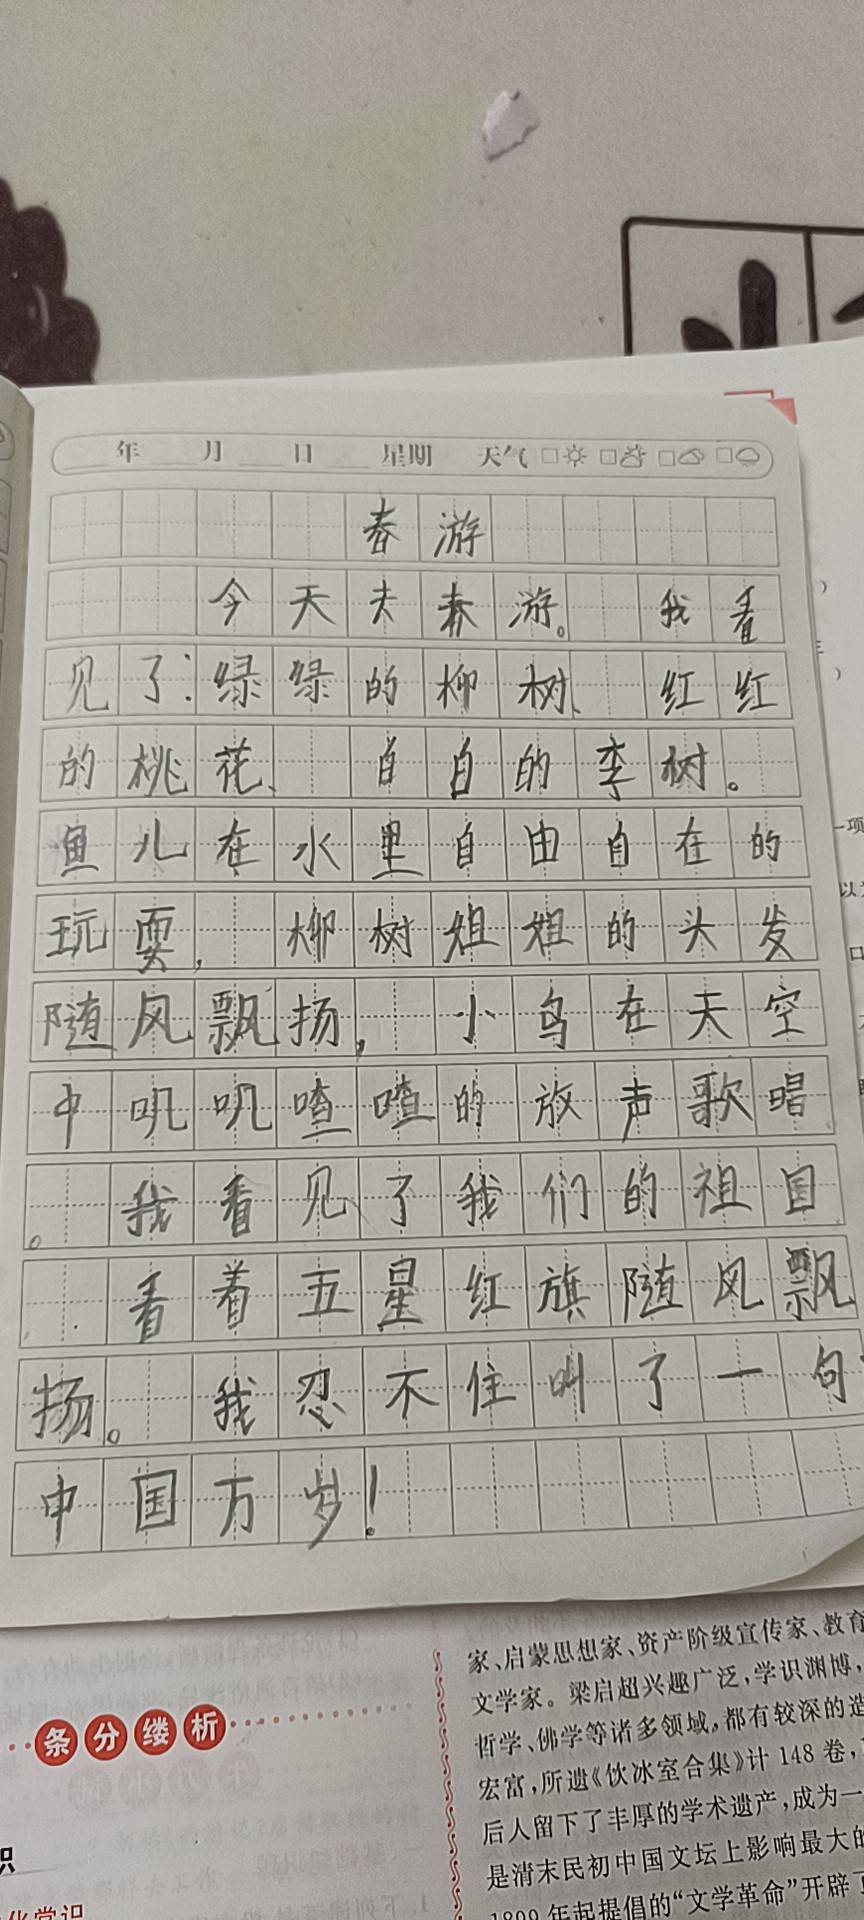 年 月 日 星期 天气
春游
今天去春游。我看
见了:绿绿的柳树、红红
的桃花、自自的李树。
鱼儿在水里自由自在的
玩耍,柳树姐姐的头发
随风飘扬,小鸟在天空
中叽叽喳喳的放声歌唱
。我看见了我们的祖国
看着五星红旗随风飘
扬。我忍不住叫了一句
中国万岁!
条分缕析
家、启蒙思想家、资产阶级宣传家、教育
文学家。梁启超兴趣广泛,学识渊博,
哲学、佛学等诸多领域,都有较深的造
宏富,所遗《饮冰室合集》计148卷,
后人留下了丰厚的学术遗产,成为一
是清末民初中国文坛上影响最大的
1899年起提倡的“文学革命”开辟了
识
化常识
一项
以为
口